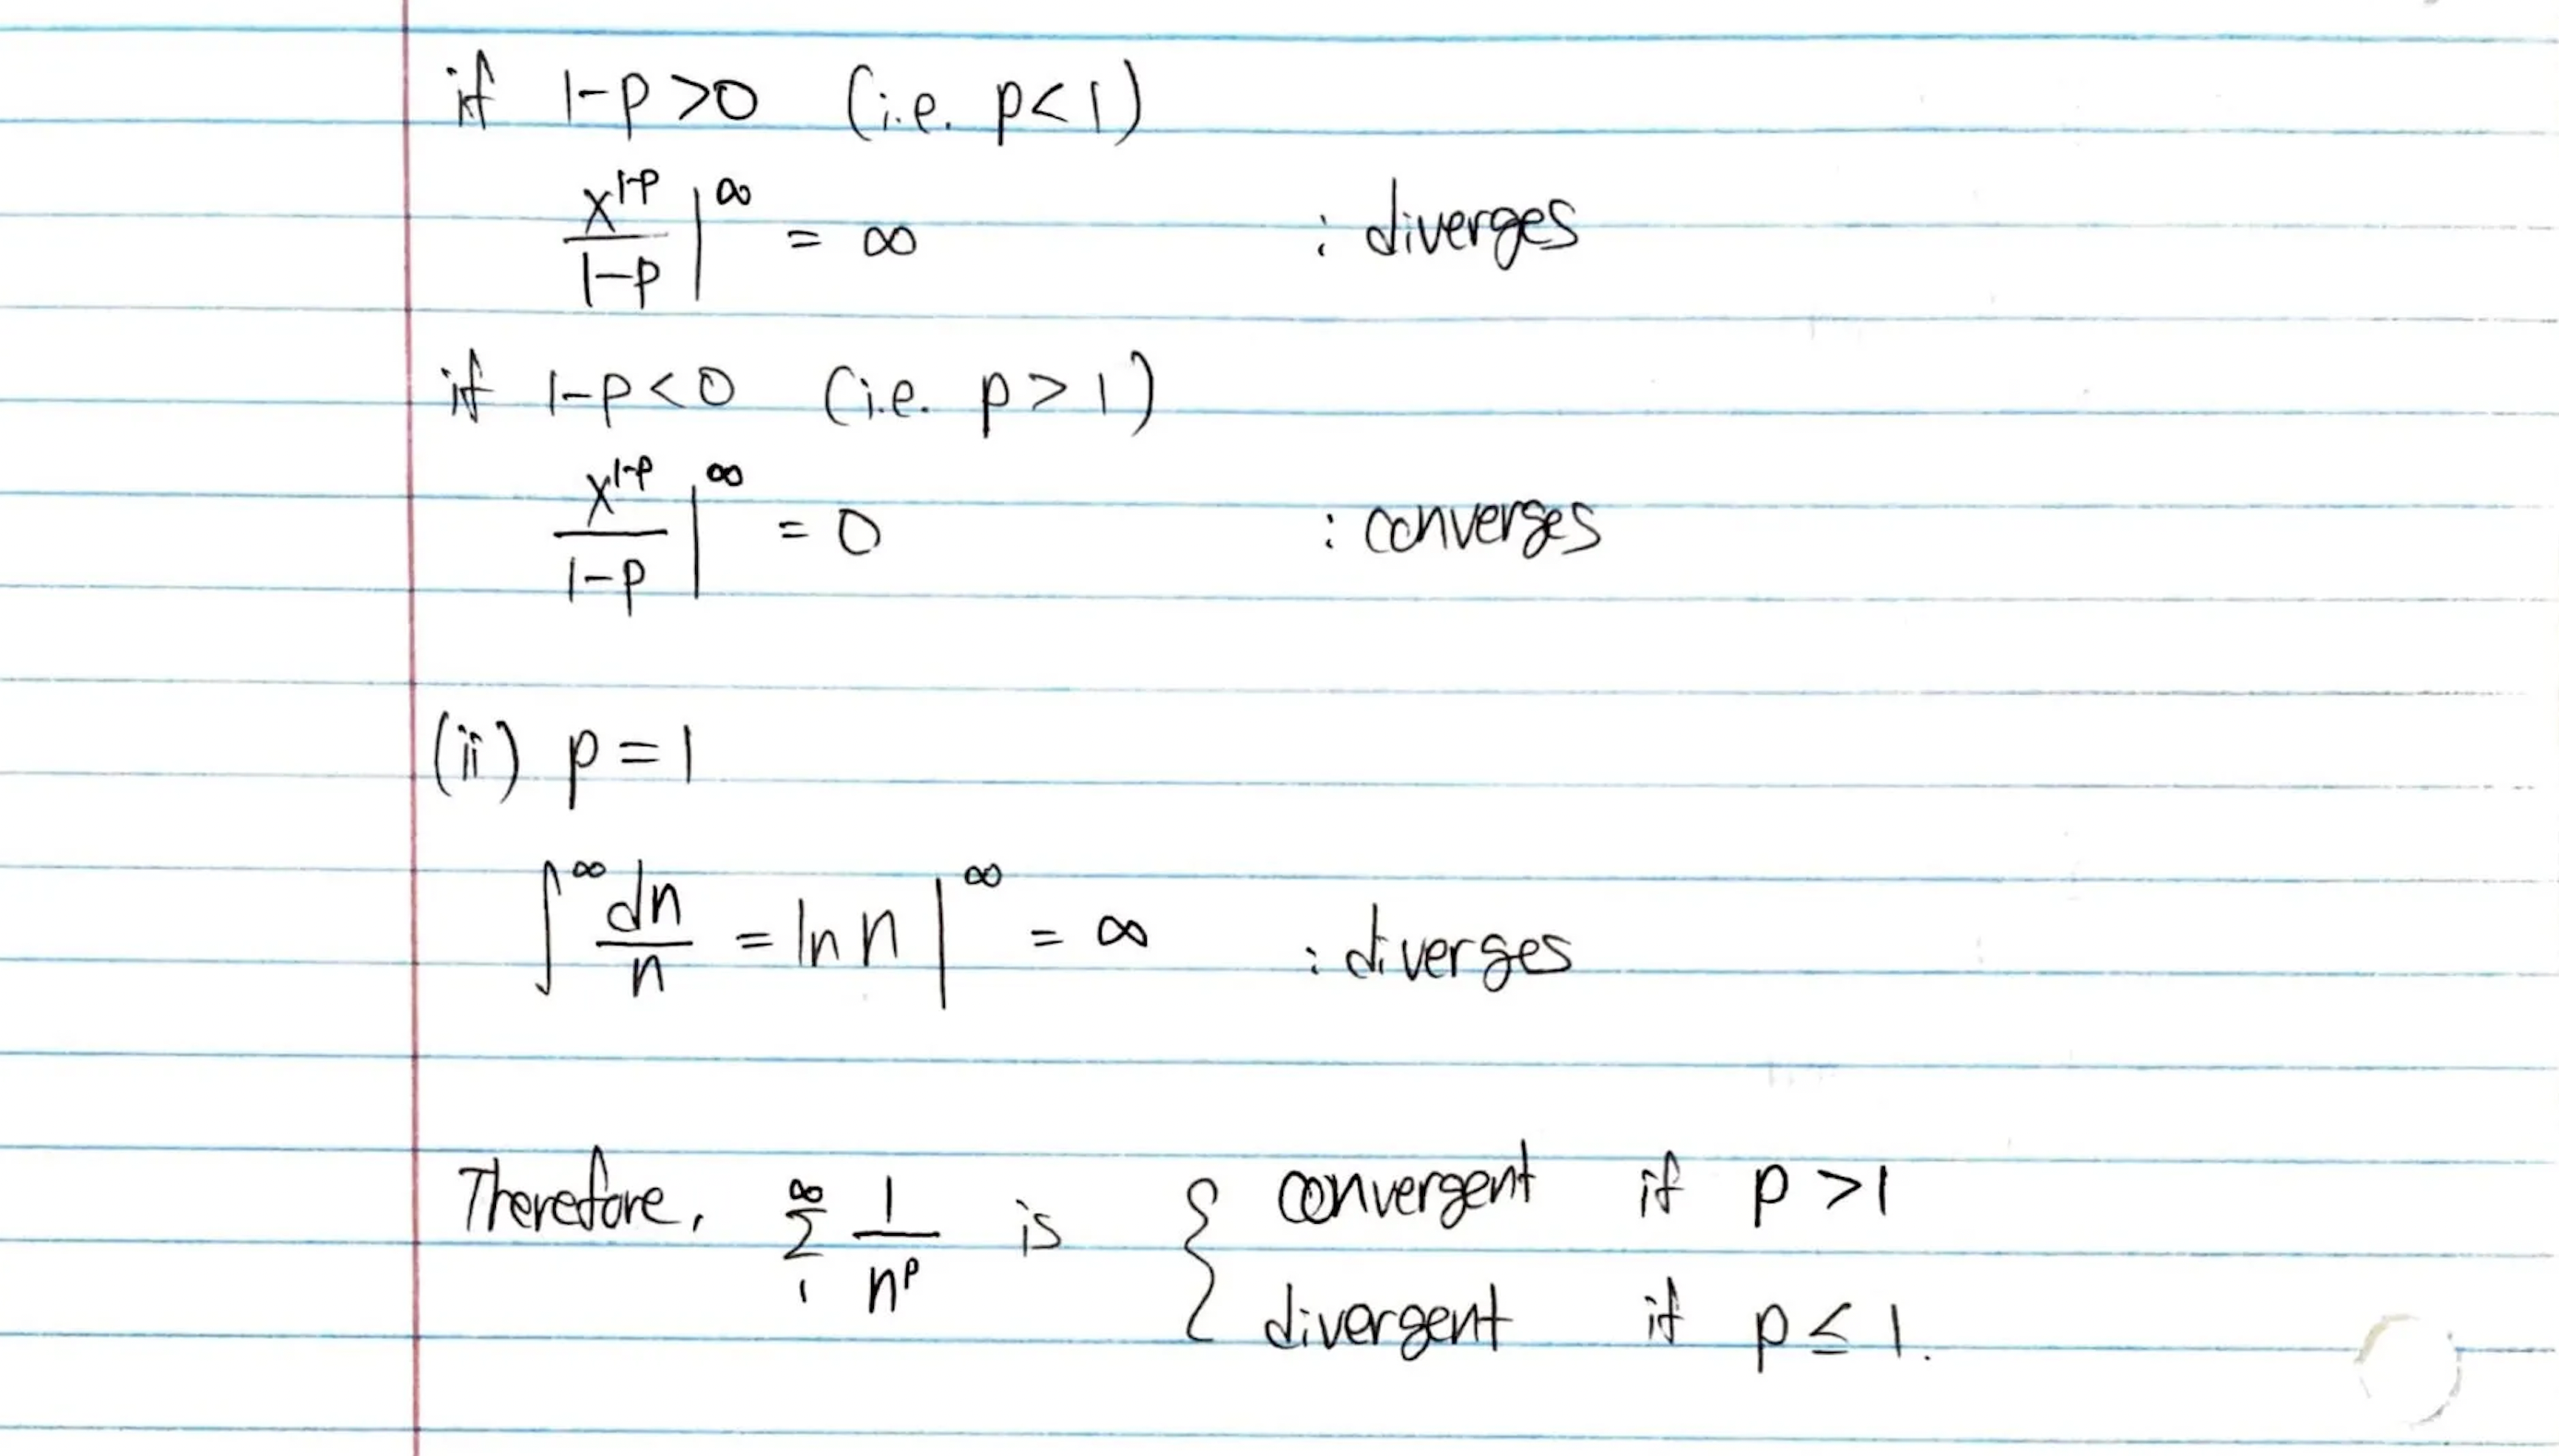 if 1-p>0 (i.e. p<1)
x^{1-p}/(1-p) |^∞ = ∞ : diverges
if 1-p<0 (i.e. p>1)
x^{1-p}/(1-p) |^∞ = 0 : converges
(ii) p=1
∫^∞ dn/n = ln n |^∞ = ∞ : diverges
Therefore, ∑_1^∞ 1/n^p is { convergent if p>1
divergent if p≤1.